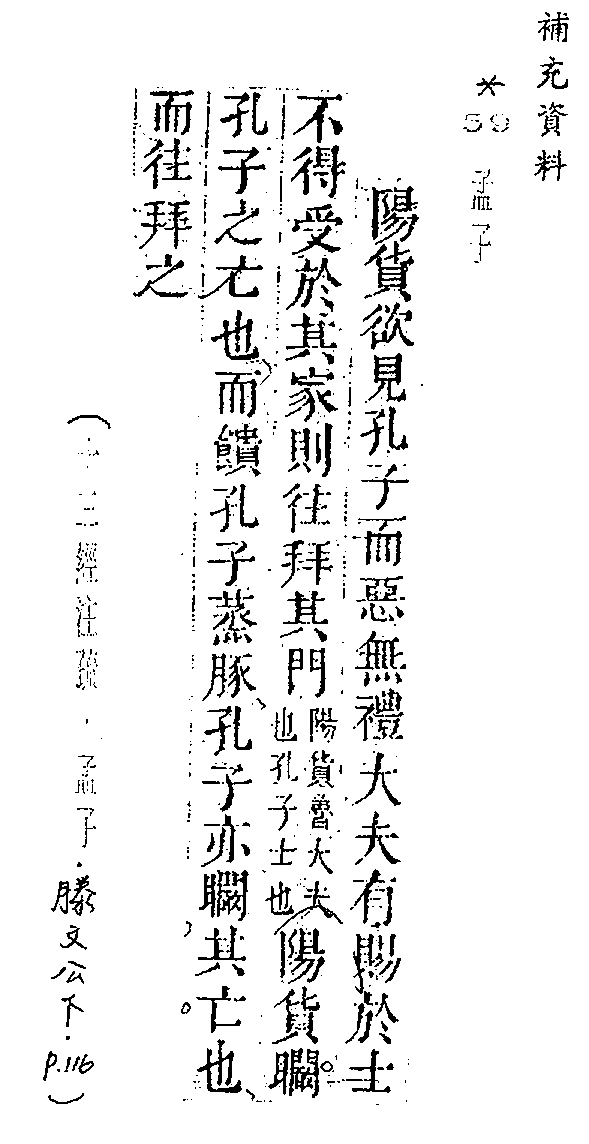 補充資料
*59 孟子
陽貨欲見孔子而惡無禮大夫有賜於士
不得受於其家則往拜其門陽貨魯大夫也孔子士也陽貨矙
孔子之亡也而饋孔子蒸豚孔子亦矙其亡也
而往拜之
(十三經注疏．孟子．滕文公下．P.116)